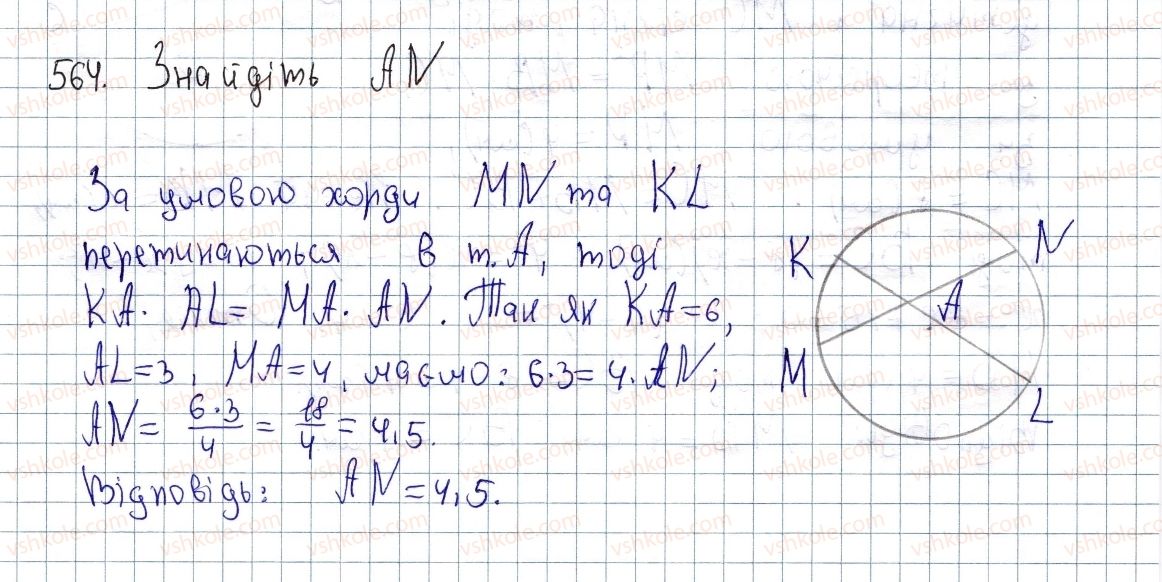 564. Знайдіть AN
За умовою хорди MN та KL
перетинаються в т. A, тоді
KA · AL = MA · AN. Так як KA = 6,
AL = 3, MA = 4, маємо: 6·3 = 4·AN;
AN = 6·3/4 = 18/4 = 4,5.
Відповідь: AN = 4,5.
K
N
A
M
L
vshkole.com